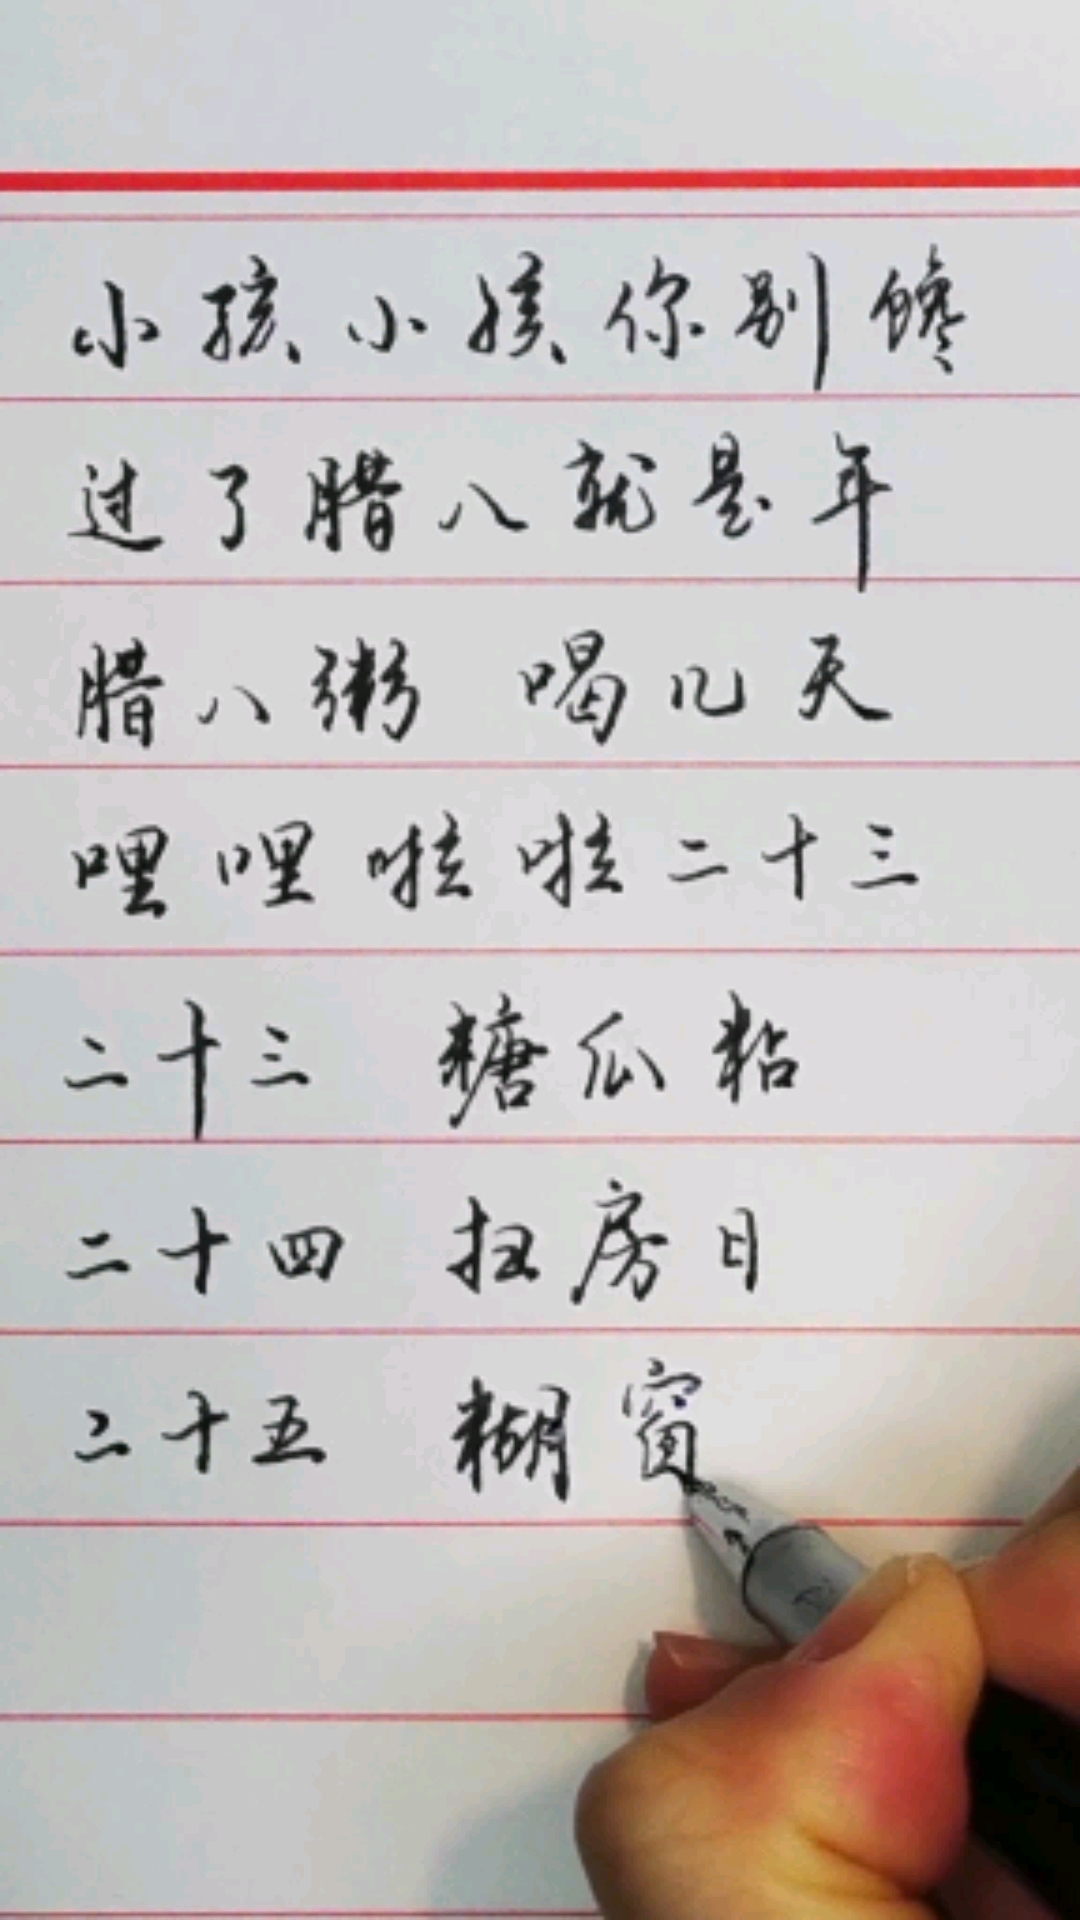 小孩小孩你别馋
过了腊八就是年
腊八粥 喝几天
哩哩啦啦二十三
二十三 糖瓜粘
二十四 扫房日
二十五 糊窗